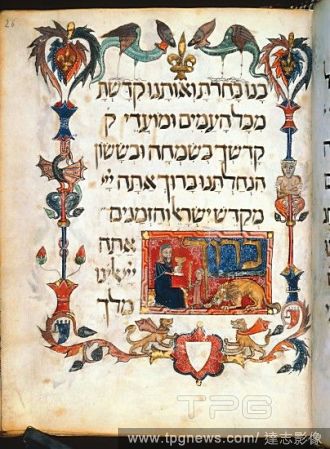 26
בנו בחרת ואותנו קדשת
מכל העמים ומועדי ק
קדשך בשמחה ובששון
הנחלתנו ברוך אתה יי
מקדש ישראל והזמנים
ברוך
אתה
יי אלהינו
מלך
TPG
www.tpgnews.com/ 達志影像